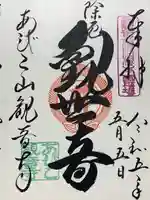 奉拝
令和五年
五月五日
除厄
觀世音
あびこ山観音寺